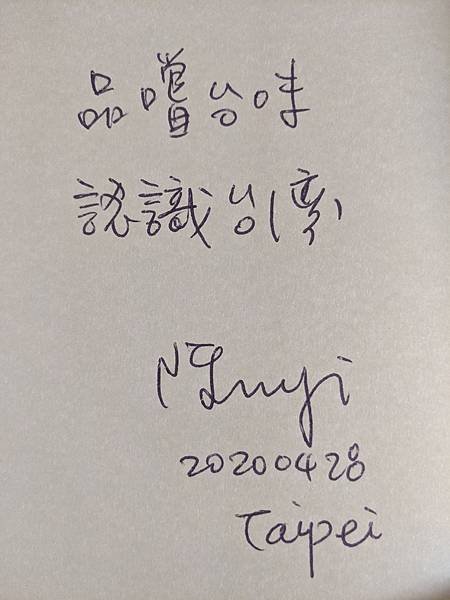 品嚐台味
認識台灣
20200428
Taipei